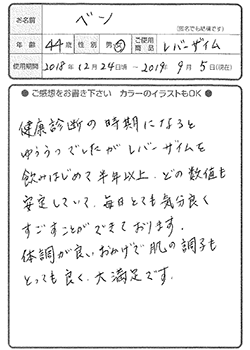 お名前 ベン
(匿名でも結構です)
年齢 44歳 性別 男・女 ご使用商品 レバーザイム
使用期間 2018年12月24日頃 ～ 2019年9月5日(現在)
● ご感想をお書き下さい カラーのイラストもOK ●
健康診断の時期になると
ゆううつでしたがレバーザイムを
飲みはじめて半年以上、どの数値も
安定していて、毎日とても気分良く
すごすことができております。
体調が良いおかげで肌の調子も
とっても良く、大満足です。